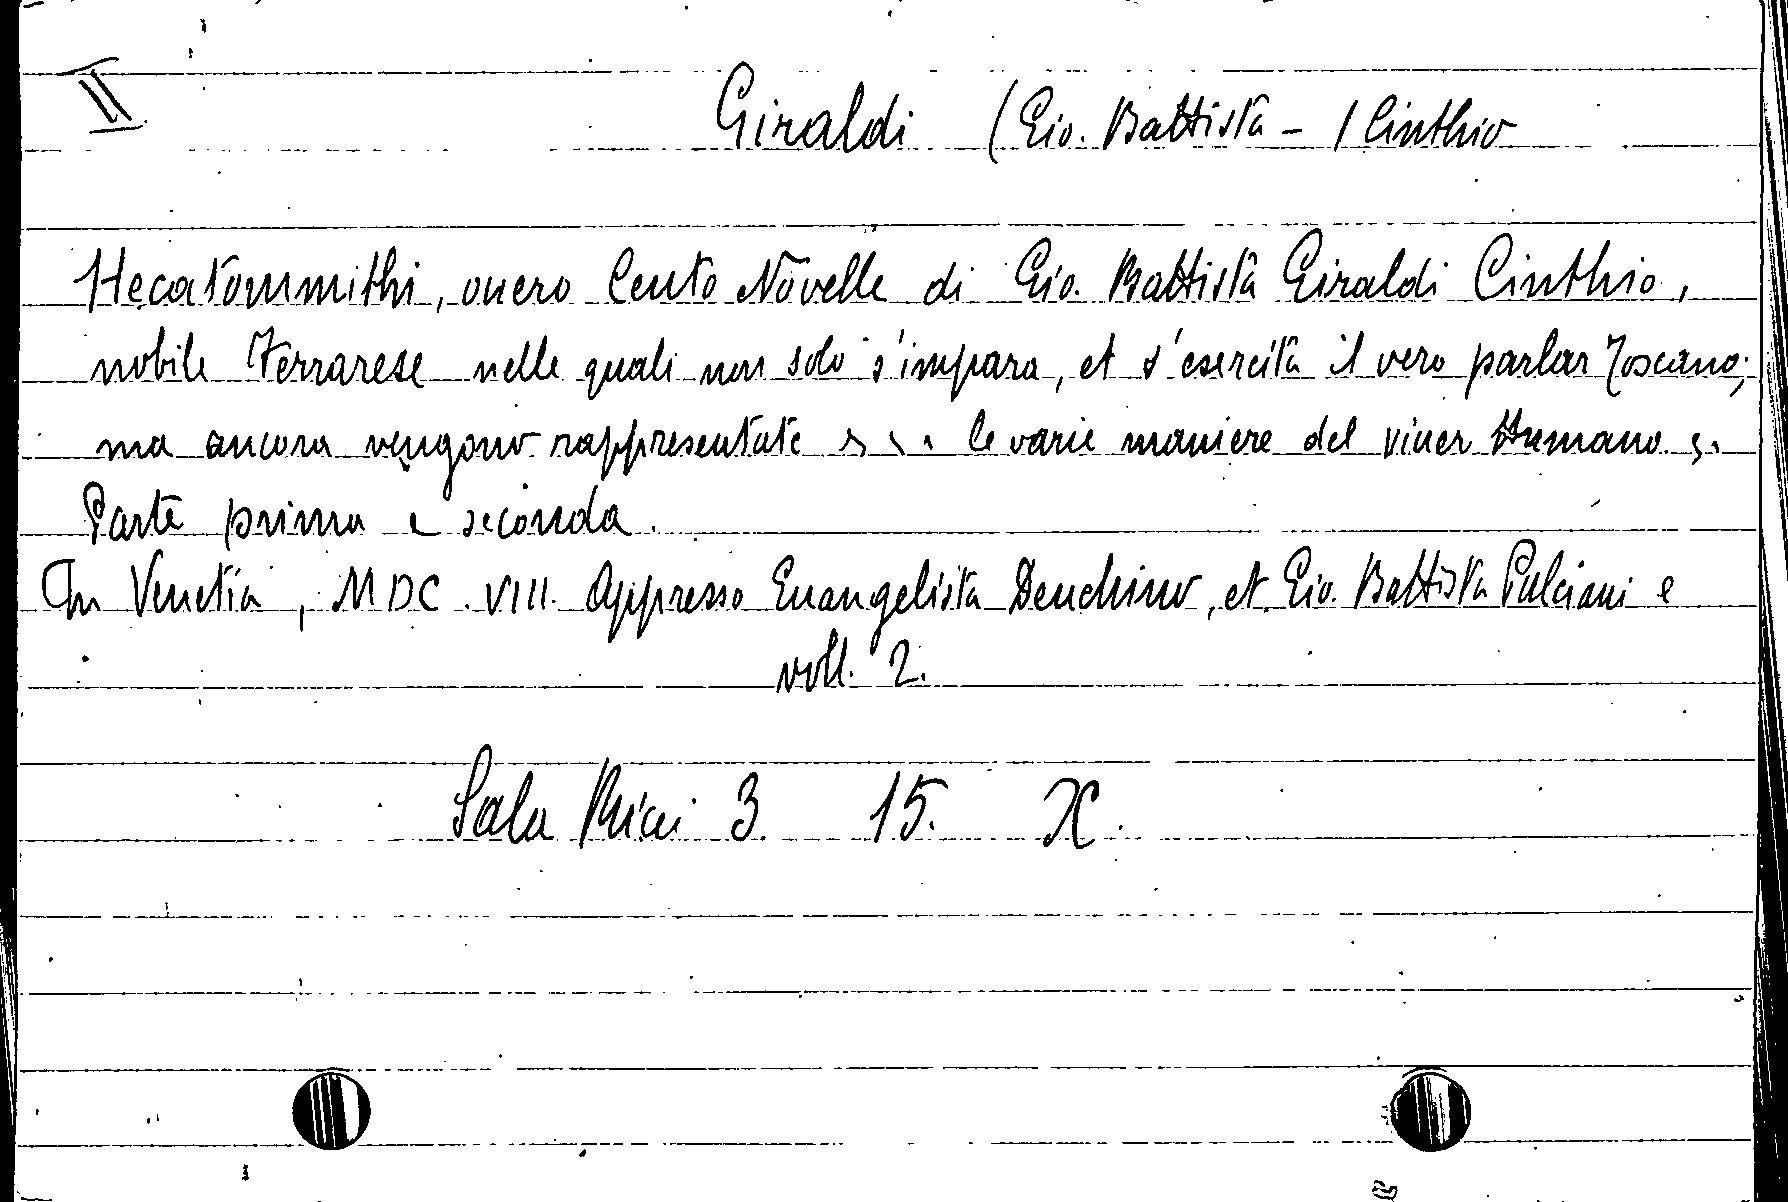 II
Giraldi (Gio. Battista - ) Cinthio
Hecatommithi, ouero Cento Novelle di Gio. Battista Giraldi Cinthio,
nobile Ferrarese nelle quali non solo s'impara, et s'esercita il vero parlar Toscano;
ma ancora vengono rappresentate . . . le varie maniere del viuer Humano . .
Parte prima e seconda.
In Venetia, MDC.VIII. Appresso Euangelista Deuchino, et Gio. Battista Pulciani e
voll. 2.
Sala Ricci 3. 15. X.